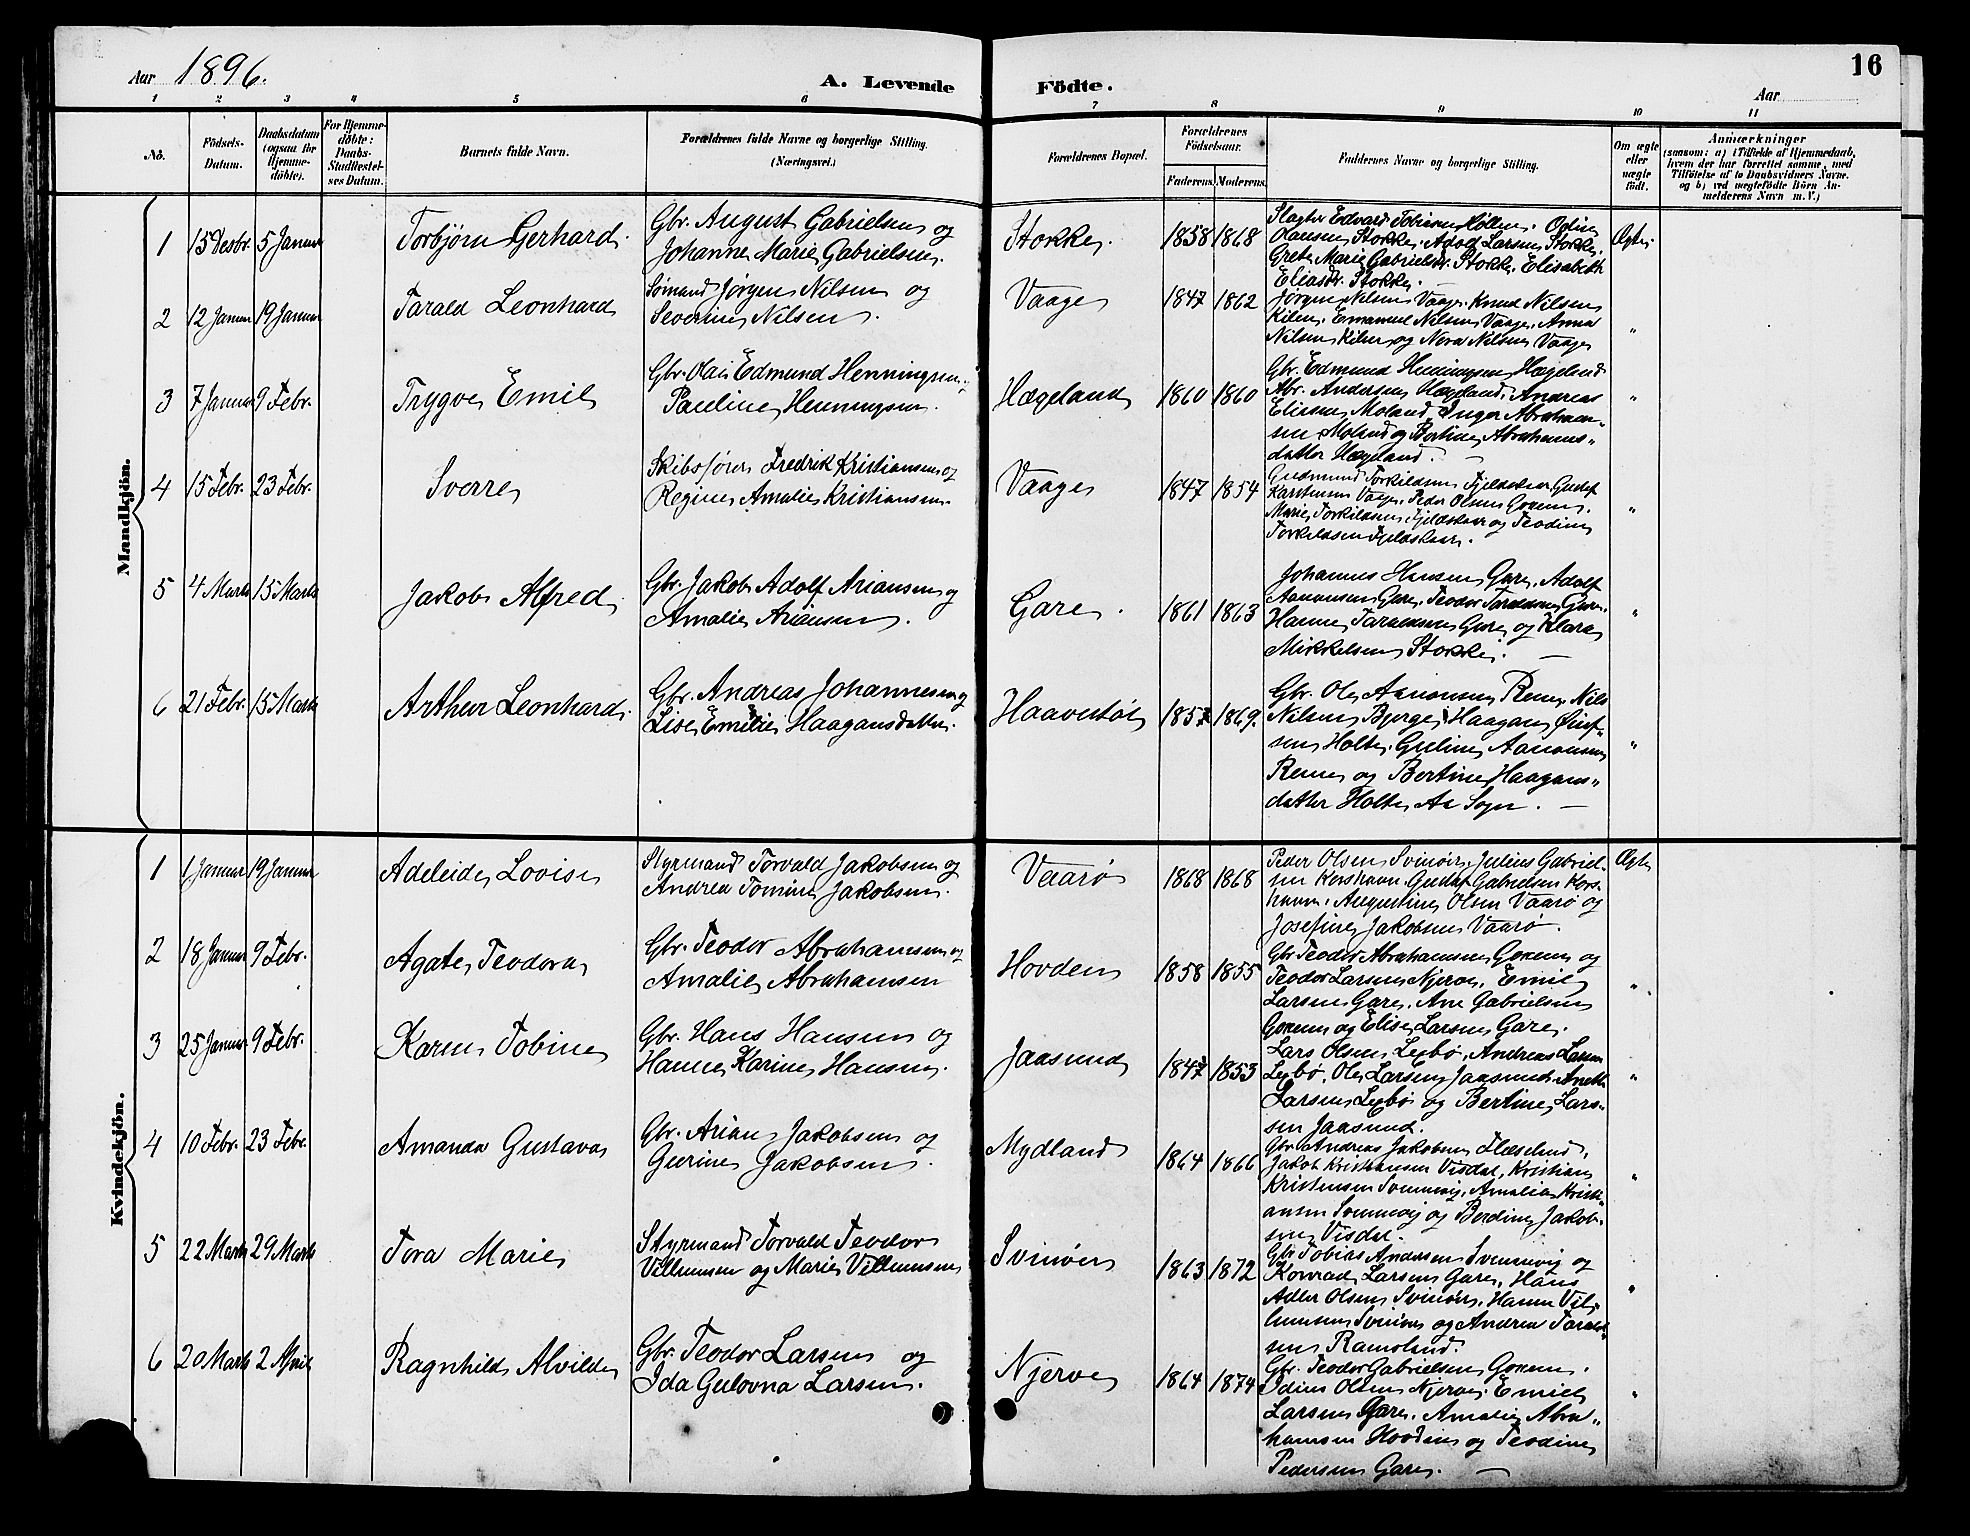 Aar 1896.
A. Levende Födte.
Aar
16
1 2 3 4 5 6 7 8 9 10 11
No.
Födsels-Datum.
Daabsdatum (ogsaa for Hjemme-döbte).
For Hjemme-döbte: Daabs-Stadfæstel-ses Datum.
Barnets fulde Navn.
Forældrenes fulde Navne og borgerlige Stilling.
(Næringsvei.)
Forældrenes Bopæl.
Forældrenes Födselsaar.
Faderens. Moderens.
Faddernes Navne og borgerlige Stilling.
Om ægte eller uægte født.
Anmærkninger
(saasom: a) i Tilfælde af Hjemmedaab,
hvem der har forrettet samme, med
Tilföielse af to Daabsvidners Navne.
og b) ved uægtefödte Börn An-
melderens Navn m. V.)
Mandkjön.
1 15 Desbr. 5 Januar Torbjørn Gerhard.
Gbr. August Gabrielsen og
Johanne Marie Gabrielsen.
Stokke. 1858 1868
Slagter Edvard Tobiasen Odin
Olausen Stokke. Adolf Larsen Stokke.
Grete Marie Gabrielsdr. Stokke, Elisabeth
Eliasdr. Stokke.
Ægte
2 12 Januar 19 Januar Tarald Leonhard
Sømand Jørgen Nilsen og
Severine Nilsen.
Vaage 1847 1862
Jørgen Nilsen Vaage. Knud Nilsen
Kilen. Emanuel Nilsen Vaage. Anna
Nilsen Kilen og Nora Nilsen Vaage
"
3 7 Januar 9 Febr. Trygve Emil
Gbr. Olai Edmund Henningsen
Pauline Henningsen.
Hægeland 1860 1860
Gbr. Edmund Henningsen Hægeland.
Abr. Andersen Hægeland, Andreas
Eliesen Moland, Inger Abraham-
sen Moland og Bertine Abrahams-
datter Hægeland.
"
4 15 Febr. 23 Febr. Sverre
Skibsfører Fredrik Kristiansen og
Regine Amalie Kristiansen.
Vaage 1847 1854
Gudmund Torkildsen Fjeldskaar. Gustaf
Karstensen Vaage, Peder Olsen
Marie Torkildsen Fjeldskaar og Teodine
Torkildsen Fjeldskaar.
"
5 4 Marts 15 Marts Jakob Alfred
Gbr. Jakob Adolf Ariansen og
Amalie Ariansen.
Gare. 1861 1863
Johannes Hansen Gare, Adolf
Aanonsen Gare. Teodor Taraldsen Gare.
Hanne Taraldsen Gare og Klara
Mikkelsen Stokke.
"
6 21 Febr. 15 Marts Arthur Leonhard.
Gbr. Andreas Johannesen og
Lise Emilie Haagansdatter.
Haavestøl 1857 1869.
Gbr. Ole Aanonsen Renne, Nils
Nilsen Bjerge, Haagan
sen Holte. Guline Aanonsen
Renne og Bertine Haagans-
datter Holte, Aa Sogn.
"
Kvindekjön.
1 1 Januar 19 Januar Adeleide Lovise
Styrmand Torvald Jakobsen og
Andrea Tomine Jakobsen.
Vaarø 1868 1868
Peder Olsen Svinør, Julius Gabriel-
sen Korshavn. Gustaf Gabrielsen Kors-
havn. Augustine Olsen Vaarø og
Josefine Jakobsen Vaarø.
Ægte
2 18 Januar 9 Febr. Agate Teodora
Gbr. Teodor Abrahamsen og
Amalie Abrahamsen
Hovden 1858 1855
Gbr. Teodor Abrahamsen og
Teodor Larsen Njerve, Emil
Larsen Gare. Ane Gabrielsen
og Elise Larsen Gare.
"
3 25 Januar 9 Febr. Karen Tobine
Gbr. Hans Hansen og
Hanne Karine Hansen.
Jaasund 1847 1853
Lars Olsen Lexbø, Andreas Larsen
Lexbø, Ole Larsen Jaasund. Anette
Larsen Lexbø og Bertine Lars-
sen Jaasund.
"
4 10 Febr. 23 Febr. Amanda Gustava
Gbr. Arian Jakobsen og
Gurine Jakobsen.
Mydland 1864 1866
Gbr. Andreas Jakobsen
Jakob Kristiansen Visdal, Kristian
Kristensen Svennevig, Amalia Kristi-
ansen Svennevig og Berdine Jakob-
sen Visdal.
"
5 22 Marts 29 Marts Tora Marie
Styrmand Torvald Teodor
Villumsen og Marie Villumsen
Svinør 1863 1872
Gbr. Tobias Andersen Svennevig og
Konrad Larsen Gare, Hans
Adler Olsen Svinør. Hanne Vil-
lumsen Svinør og Andrea Tarald-
sen Ramsland.
"
6 20 Marts 2 April Ragnhild Alvilde
Gbr. Teodor Larsen og
Ida Gulovna Larsen.
Njerve 1864 1874
Gbr. Teodor Gabrielsen
Olsen Njerve. Emil
Larsen Gare. Amalie Abra-
hamsen Hovden og Teodine
Pedersen Gare.
"